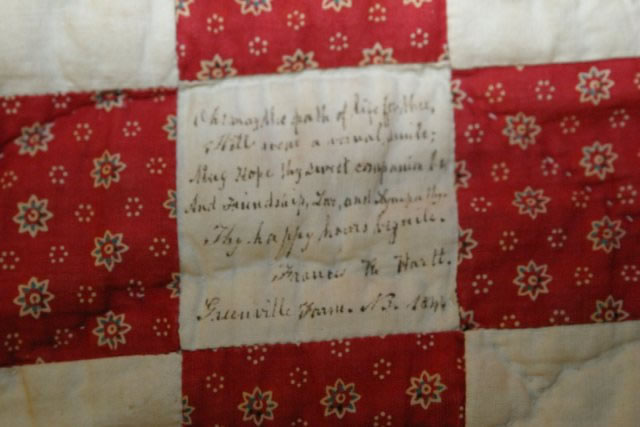 Oh! may the path of life for thee,
Still wear a vernal smile;
May Hope thy sweet companion be
And Friendship, Love, and Sympathy
Thy happy hours beguile.
Frances K. Hartt.
Greenville Farm. N.B.